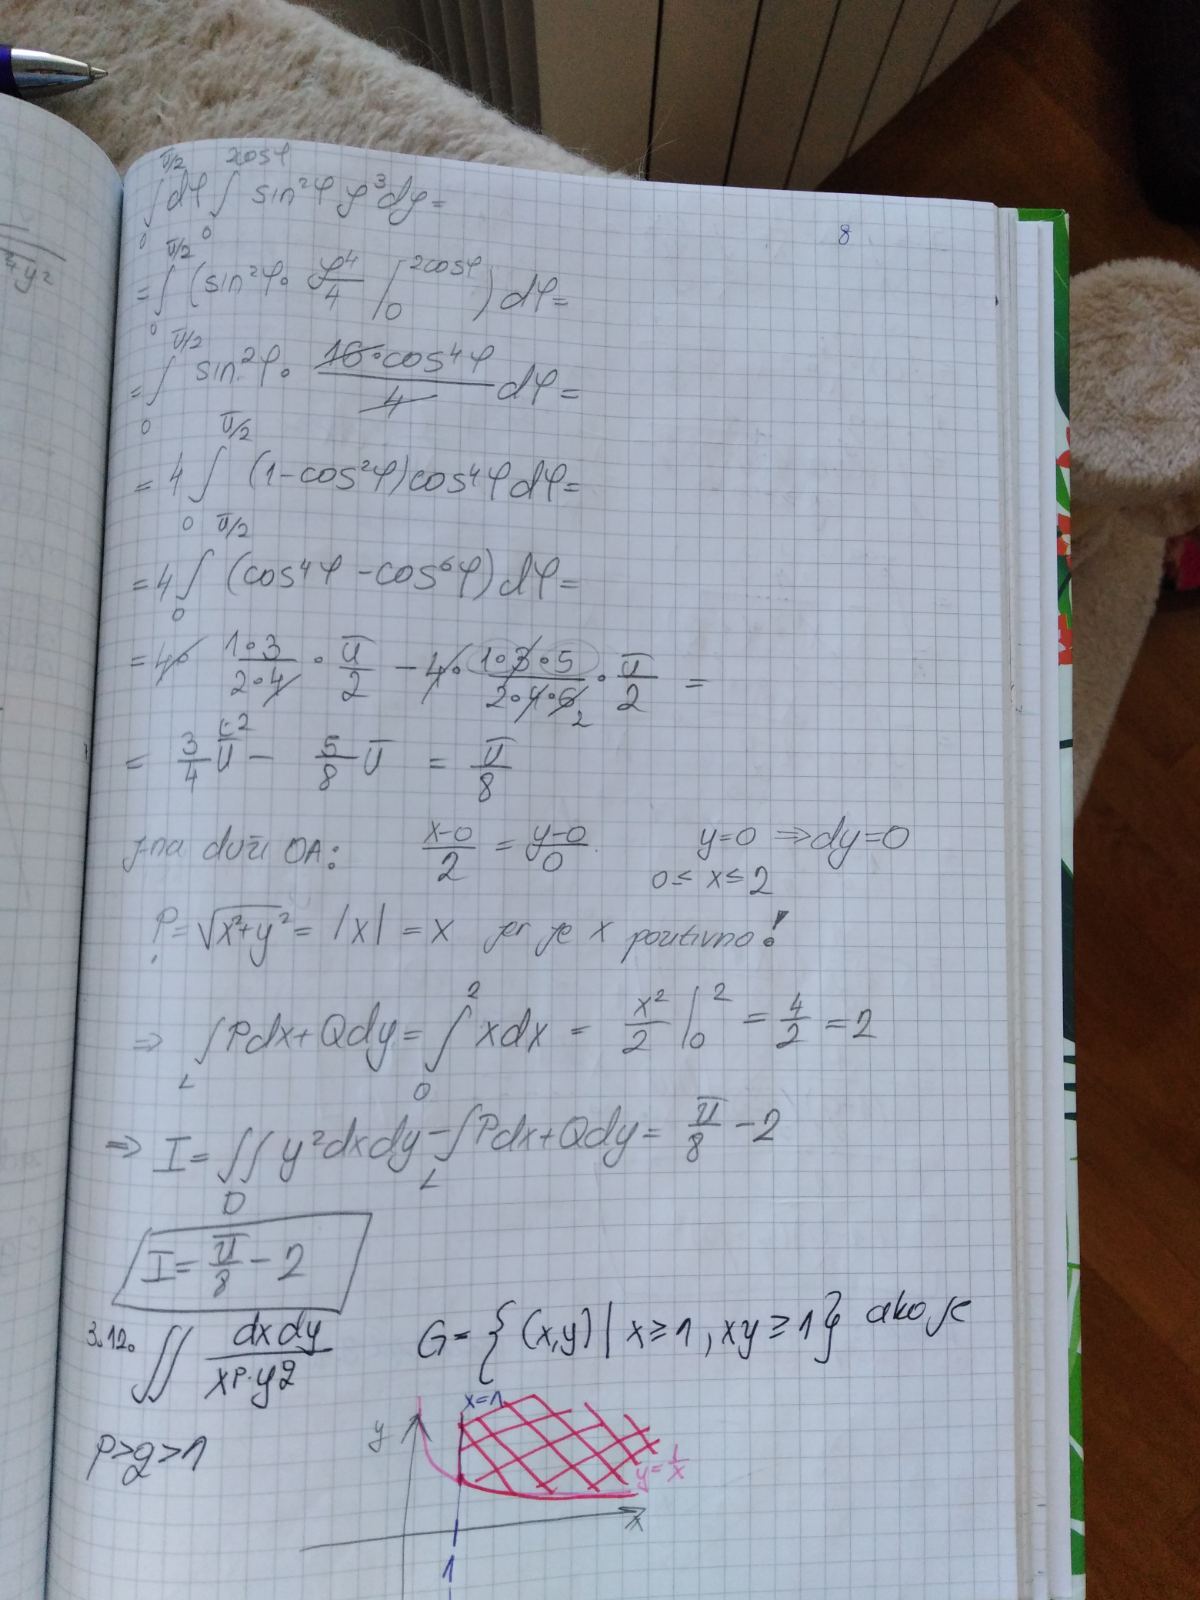 8
∫₀^{π/2} dφ ∫₀^{2cosφ} sin²φ ρ³dρ =
= ∫₀^{π/2} (sin²φ · ρ⁴/4 |₀^{2cosφ}) dφ =
= ∫₀^{π/2} sin²φ · 16·cos⁴φ/4 dφ =
= 4 ∫₀^{π/2} (1-cos²φ)cos⁴φ dφ =
= 4 ∫₀^{π/2} (cos⁴φ - cos⁶φ) dφ =
= 4· 1·3/2·4 · π/2 - 4· 1·3·5/2·4·6 · π/2 =
= 3/4 π - 5/8 π = π/8
j-na duži OA: x-0/2 = y-0/0 y=0 ⇒ dy=0
0 ≤ x ≤ 2
P = √x²+y² = |x| = x jer je x pozitivno!
⇒ ∫_L Pdx+Qdy = ∫₀² xdx = x²/2 |₀² = 4/2 = 2
⇒ I = ∬_D y²dxdy - ∫_L Pdx+Qdy = π/8 - 2
I = π/8 - 2
3.12. ∬ dxdy/xᵖ·y^q G = {(x,y) | x ≥ 1, xy ≥ 1} ako je
p>q>1
x=1
y
y=1/x
x
1